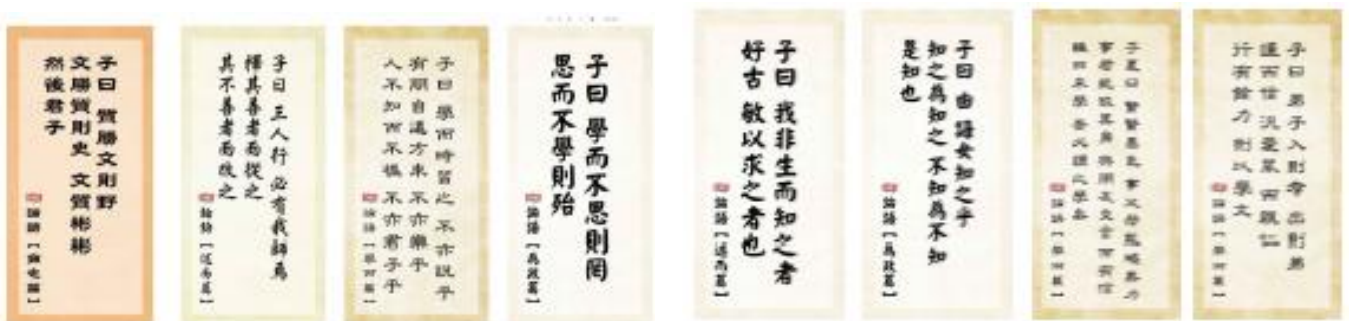 子曰 質勝文則野
文勝質則史 文質彬彬
然後君子
論語 [雍也篇]
子曰 三人行 必有我師焉
擇其善者而從之
其不善者而改之
論語 [述而篇]
子曰 學而時習之 不亦説乎
有朋自遠方來 不亦樂乎
人不知而不慍 不亦君子乎
論語 [學而篇]
子曰 學而不思則罔
思而不學則殆
論語 [爲政篇]
子曰 我非生而知之者
好古 敏以求之者也
論語 [述而篇]
子曰 由 誨女知之乎
知之爲知之 不知爲不知
是知也
論語 [爲政篇]
子夏曰 賢賢易色 事父母能竭其力
事君能致其身 與朋友交 言而有信
雖曰未學 吾必謂之學矣
論語 [學而篇]
子曰 弟子入則孝 出則弟
謹而信 汎愛衆 而親仁
行有餘力 則以學文
論語 [學而篇]